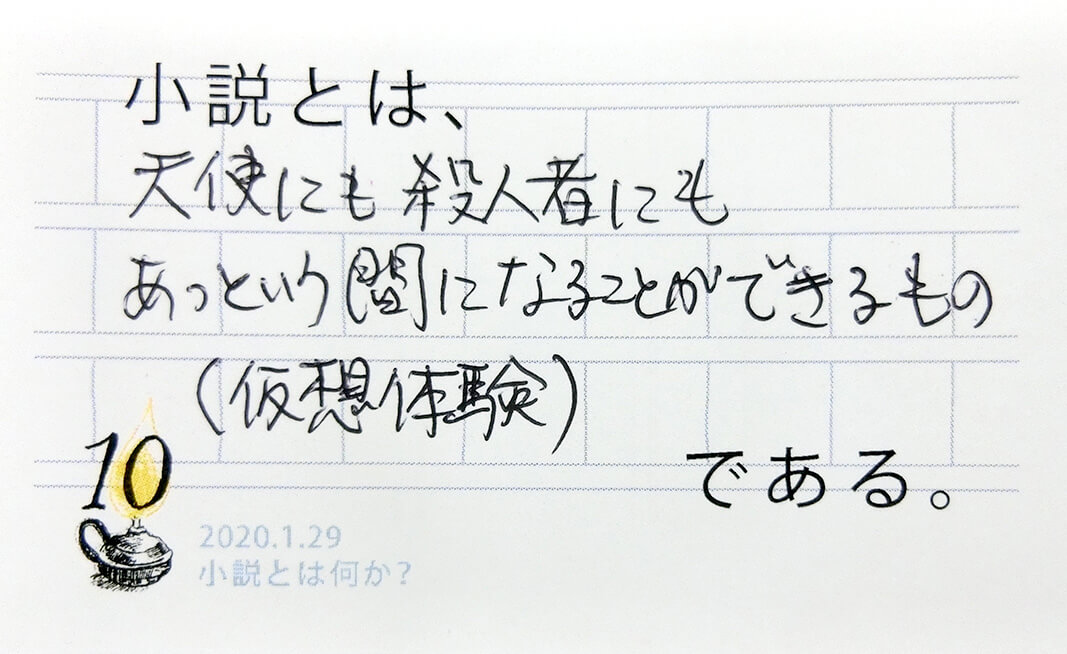 小説とは、
天使にも殺人者にも
あっという間になることができるもの
（仮想体験）
である。
10
2020.1.29
小説とは何か？